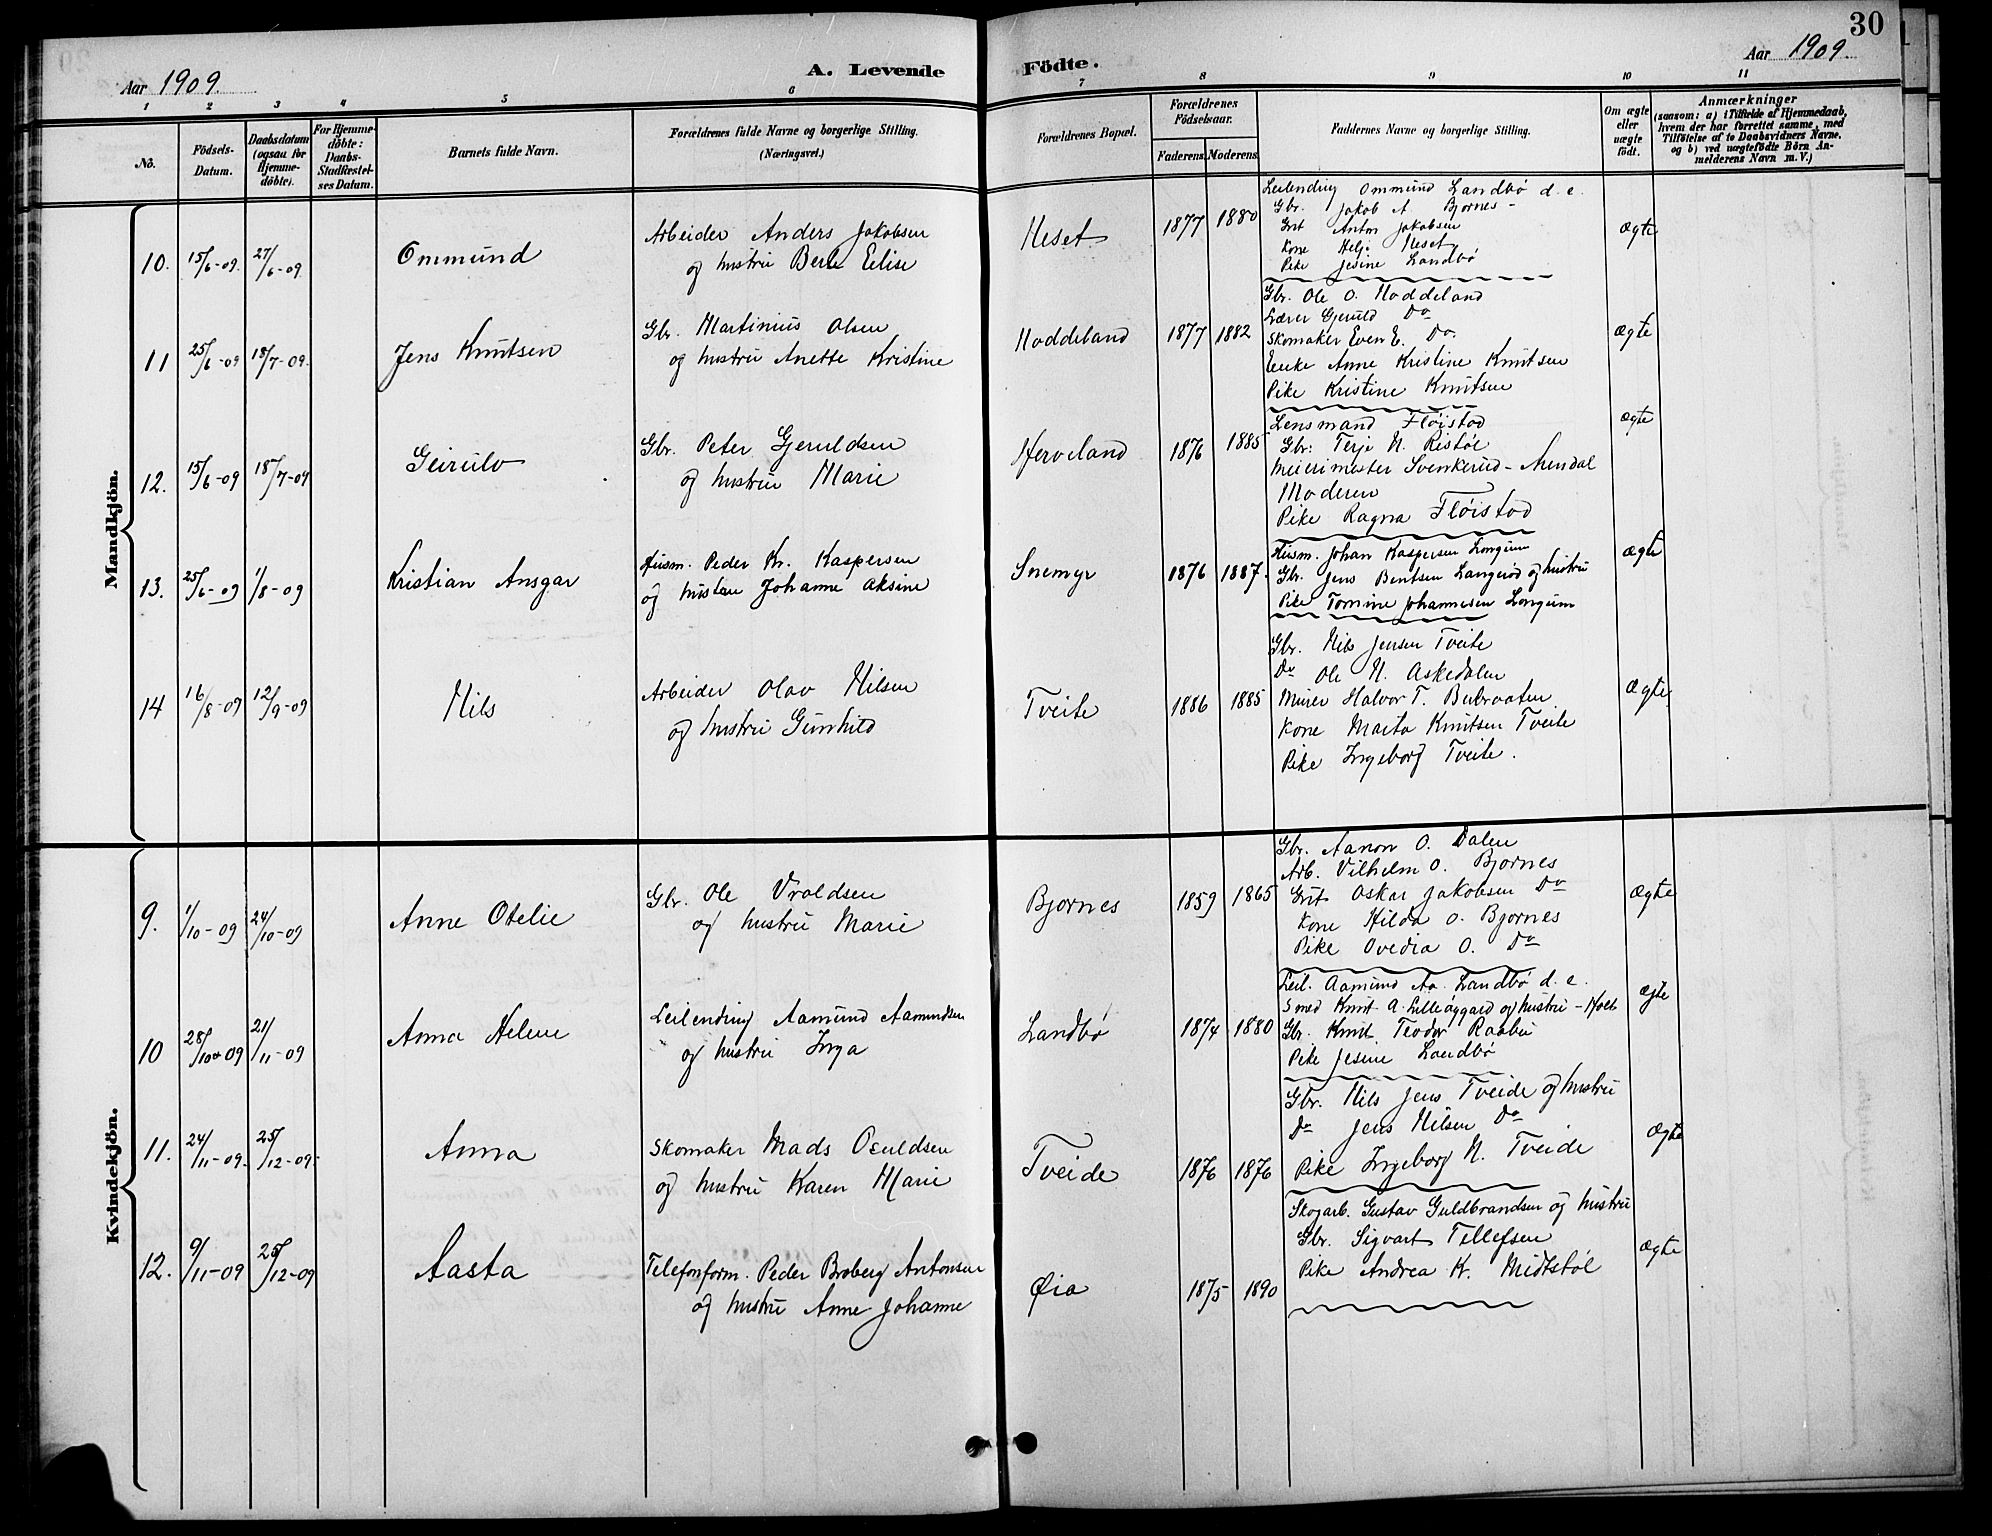 30
Aar 1909.
A. Levende Födte.
Aar 1909.
1 2 3 4 5 6 7 8 9 10 11
No.
Födsels-Datum.
Daabsdatum (ogsaa for Hjemme-döbte).
For Hjemme-döbte: Daabs-Stadfæstel-ses Datum.
Barnets fulde Navn.
Forældrenes fulde Navne og borgerlige Stilling.
(Næringsvei.)
Forældrenes Bopæl.
Forældrenes Födselsaar.
Faderens. Moderens.
Faddernes Navne og borgerlige Stilling.
Om ægte eller uægte födt.
Anmærkninger
(saasom: a) i Tilfælde af Hjemmedaab,
hvem der har forrettet samme, med
Tilföielse af to Daabsvidners Navne.
og b) ved uægtefödte Börn An-
melderens Navn m. V.)
Mandkjön.
10. 15/6-09. 27/6-09 Ommund
Arbeider Anders Jakobsen
og hustru Berte Elise
Neset 1877 1880
Leilending Ommund Landbø d. e.
Gbr. Jakob A Bjornes -
Grit Anton Jakobsen
Kone Helje Neset
Pike Jesine Landbø
ægte
11 25/6-09 18/7-09. Jens Knutsen
Gbr. Martinius Olsen
og hustru Anette Kristine
Noddeland 1877 1882
Gbr. Ole O. Noddeland
Lærer Gjeruld Do
Skomaker Even E. Do.
Enke Anne Kristine Knutsen
Pike Kristine Knutsen
ægte
12. 15/6-09 18/7-09 Geirulv
Gbr. Peter Gjeruldsen
og hustru Marie
Herveland 1876 1885
Lensmand Fløistad
Gbr: Terje N. Ristøl
Meierimester Svenkerud - Arendal
Moderen
Pike Ragna Fløistad
ægte
13. 25/6-09 1/8-09 Kristian Ansgar
Husm. Peder Kr. Kaspersen
og hustru Johanne Aksine
Snemyr 1876 1887.
Husm. Johan Kaspersen Longum
Gbr. Jens Bentsen Langerød og hustru
Pike Tomine Johannesen Longum
ægte
14 16/8-09 12/9-09 Nils
Arbeider Olav Nilsen
og hustru Gunhild
Tveite 1886 1885
Gbr. Nils Jensen Tveite
Do Ole N. Askedalen
Murer Halvor T. Bubraaten
Kone Marta Knutsen Tveite
Pike Ingeborg Tveite.
ægte
Kvindekjön.
9. 1/10-09 24/10-09 Anne Otelie
Gbr. Ole Vraldsen
og hustru Marie
Bjornes 1859 1865
Gbr. Aanon O. Dalen
Arb. Vilhelm O. Bjornes
Grit Oskar Jakobsen Do
Kone Hilda O. Bjornes
Pike Ovedia O. Do
ægte
10 28/10-09 21/11-09 Anna Helene
Leilending Aamund Aamundsen
og hustru Inga
Landbø 1874 1880
Leil. Aamund Aa. Landbø d. e.
Smed Knut A. Lilleaaggard og hustru - Holt
Gbr. Knut Teodor Raabu
Pike Jesine Landbø
ægte
11. 24/11-09. 25/12-09. Anna
Skomaker Mads Osuldsen
og hustru Karen Marie
Tveide 1876 1876
Gbr. Nils Jens Tveide og hustru
Do Jens Nilsen Do
Pike Ingeborg N. Tveide
ægte
12. 9/11-09 26/12-09 Aasta
Telefonform. Peder Broberg Antonsen
og hustru Anne Johanne
Øia 1875 1890
Skogarb. Gustav Guldbrandsen og hustru
Gbr. Sigvart Tellefsen
Pike Andrea K. Midtstøl
ægte